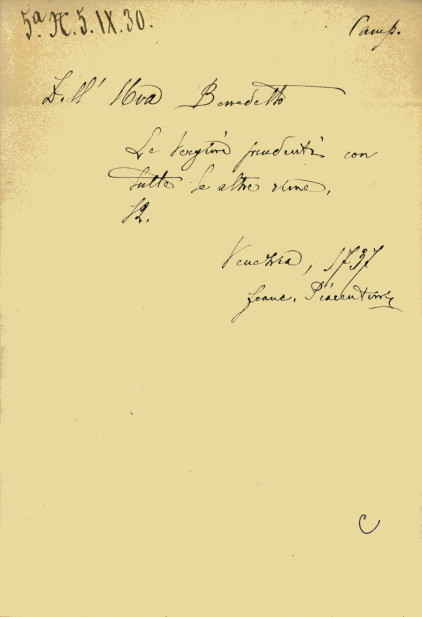 5ª H. 5. IX. 30.
Camp.
Dell' Uva Benedetto
Le Vergini prudenti con
tutte le altre rime.
12.
Venezia, 1737
Franc. Piacentini
C